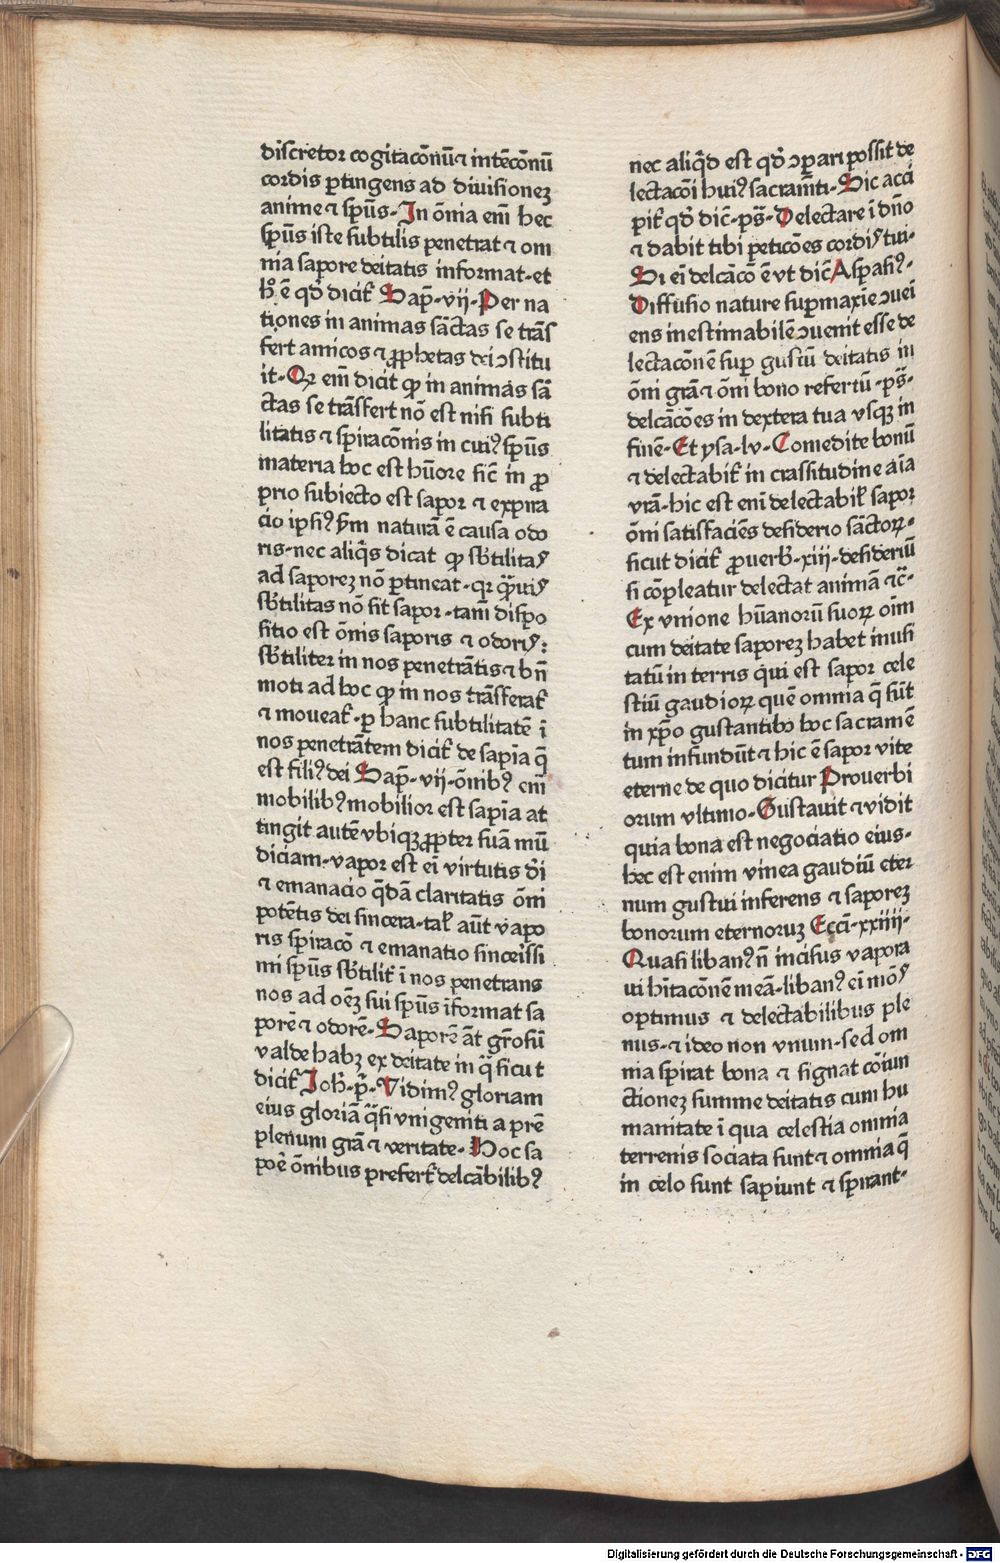 discretor cogitacōnū ⁊ intēcōnū
cordis ꝑtingens ad diuisionez
anime ⁊ sp̄us. In ōnia em̄ hec
sp̄us iste subtilis penetrat ⁊ om
nia sapore deitatis informat. et
h̊ ē qd̓ dicit᷑ Sap̄. vii. Per na
tiones in animas sāctas se trāſ
fert amicos ⁊ ꝓphetas dei ꝯstitu
it. Qꝛ em̄ dicit ꝙ in animas sā
ctas se trāsfert nō est nisi subti
litatis ⁊ spiracōnis in cuiꝰ sp̄us
materia hoc est hūore sic̄ in ꝓ
prio subiecto est sapor ⁊ expira
cio ipsiꝰ ẜm naturā ē causa odo
ris. nec aliq̄s dicat ꝙ sb̓tilitaẜ
ad saporez nō ꝑtineat. qꝛ q̄̃uiẜ
sb̓tilitas nō sit sapor. tam̄ dispo
sitio est ōnis saporis ⁊ odoriẜ:
sb̓tiliter in nos penetrātis ⁊ bn̄
moti ad hoc ꝙ in nos trāsferat᷑
⁊ moueat᷑. ꝑ hanc subtilitatē ī
nos penetrātem dicit᷑ de sapīa q̄
est filiꝰ dei Sap̄. vii. ōnibꝰ em̄
mobilibꝰ mobilior est sapīa at
tingit autē vbiqꝫ ꝓpter suā mū
diciam. vapor est ei̅ virtutis d̓i
⁊ emanacio q̄dā claritatis ōni
potētis dei sincera. tal᷑ aūt vapo
ris spiracō ⁊ emanatio sincerissi
mi sp̄us sb̓tilit᷑ ī nos penetrans
nos ad oēz sui sp̄us īformat sa
porē ⁊ odorē. Saporē āt gr̄osū
valde habꝫ ex deitate in q̄ sicut
dicit᷑ Joh̄. p̄. Vidimꝰ gloriam
eius gloriā q̄si vnigeniti a prē
plenum grā ⁊ veritate. Hoc sa
poē ōnibus prefert᷑ delcābilibꝰ
nec aliq̄d est qd̓ ꝯꝑari possit de
lectacōi huiꝰ sacramt̄i. Sic acci
pit᷑ qd̓ dic̄. ps̄. Delectare ī dn̄o
⁊ dabit tibi peticōes cordiẜ tui.
Si ei̅ delcācō ē vt dic̄ Aspasiꝰ.
Diffusio nature suꝑmaxīe ꝯuei̅
ens inestimabilē ꝯuenit esse de
lectacōnē suꝑ gustū deitatis in
ōni grā ⁊ ōni bono refertū. ps̄.
delcācōes in dextera tua vsqꝫ in
finē. Et ysa. lv. Comedite bonū
⁊ delectabit᷑ in crassitudine aīa
vrā. hic est eni̅ delectabil᷑ sapor
ōni satisfaciēs desiderio sāctoꝝ.
sicut dicit᷑ ꝓuerb̓. xiii. desideriū
si cōpleatur delectat animā ⁊c̄.
Ex vnione hūanorū suoꝝ oīm
cum deitate saporez habet inusi
tatū in terris qui est sapor cele
stiū gaudioꝝ quē omnia q̄ sūt
in xp̄o gustantibꝰ hoc sacramē
tum infundūt ⁊ hic ē sapor vite
eterne de quo dicitur Prouerbi
orum vltimo. Gustauit ⁊ vidit
quia bona est negociatio eius.
hec est enim vinea gaudiū eter
num gustui inferens ⁊ saporez
bonorum eternoruꝫ Eccī. xxiiii.
Quasi libanꝰ n̄ incisus vapora
ui hītacōnē meā. libanꝰ ei̅ mōẜ
optimus ⁊ delectabilibus ple
nus. ⁊ ideo non vnum. sed om
nia spirat bona ⁊ signat cōiun
ctionez summe deitatis cum hu
manitate ī qua celestia omnia
terrenis sociata sunt ⁊ omnia q̄
in celo sunt sapiunt ⁊ spirant.
Digitalisierung gefördert durch die Deutsche Forschungsgemeinschaft - DFG